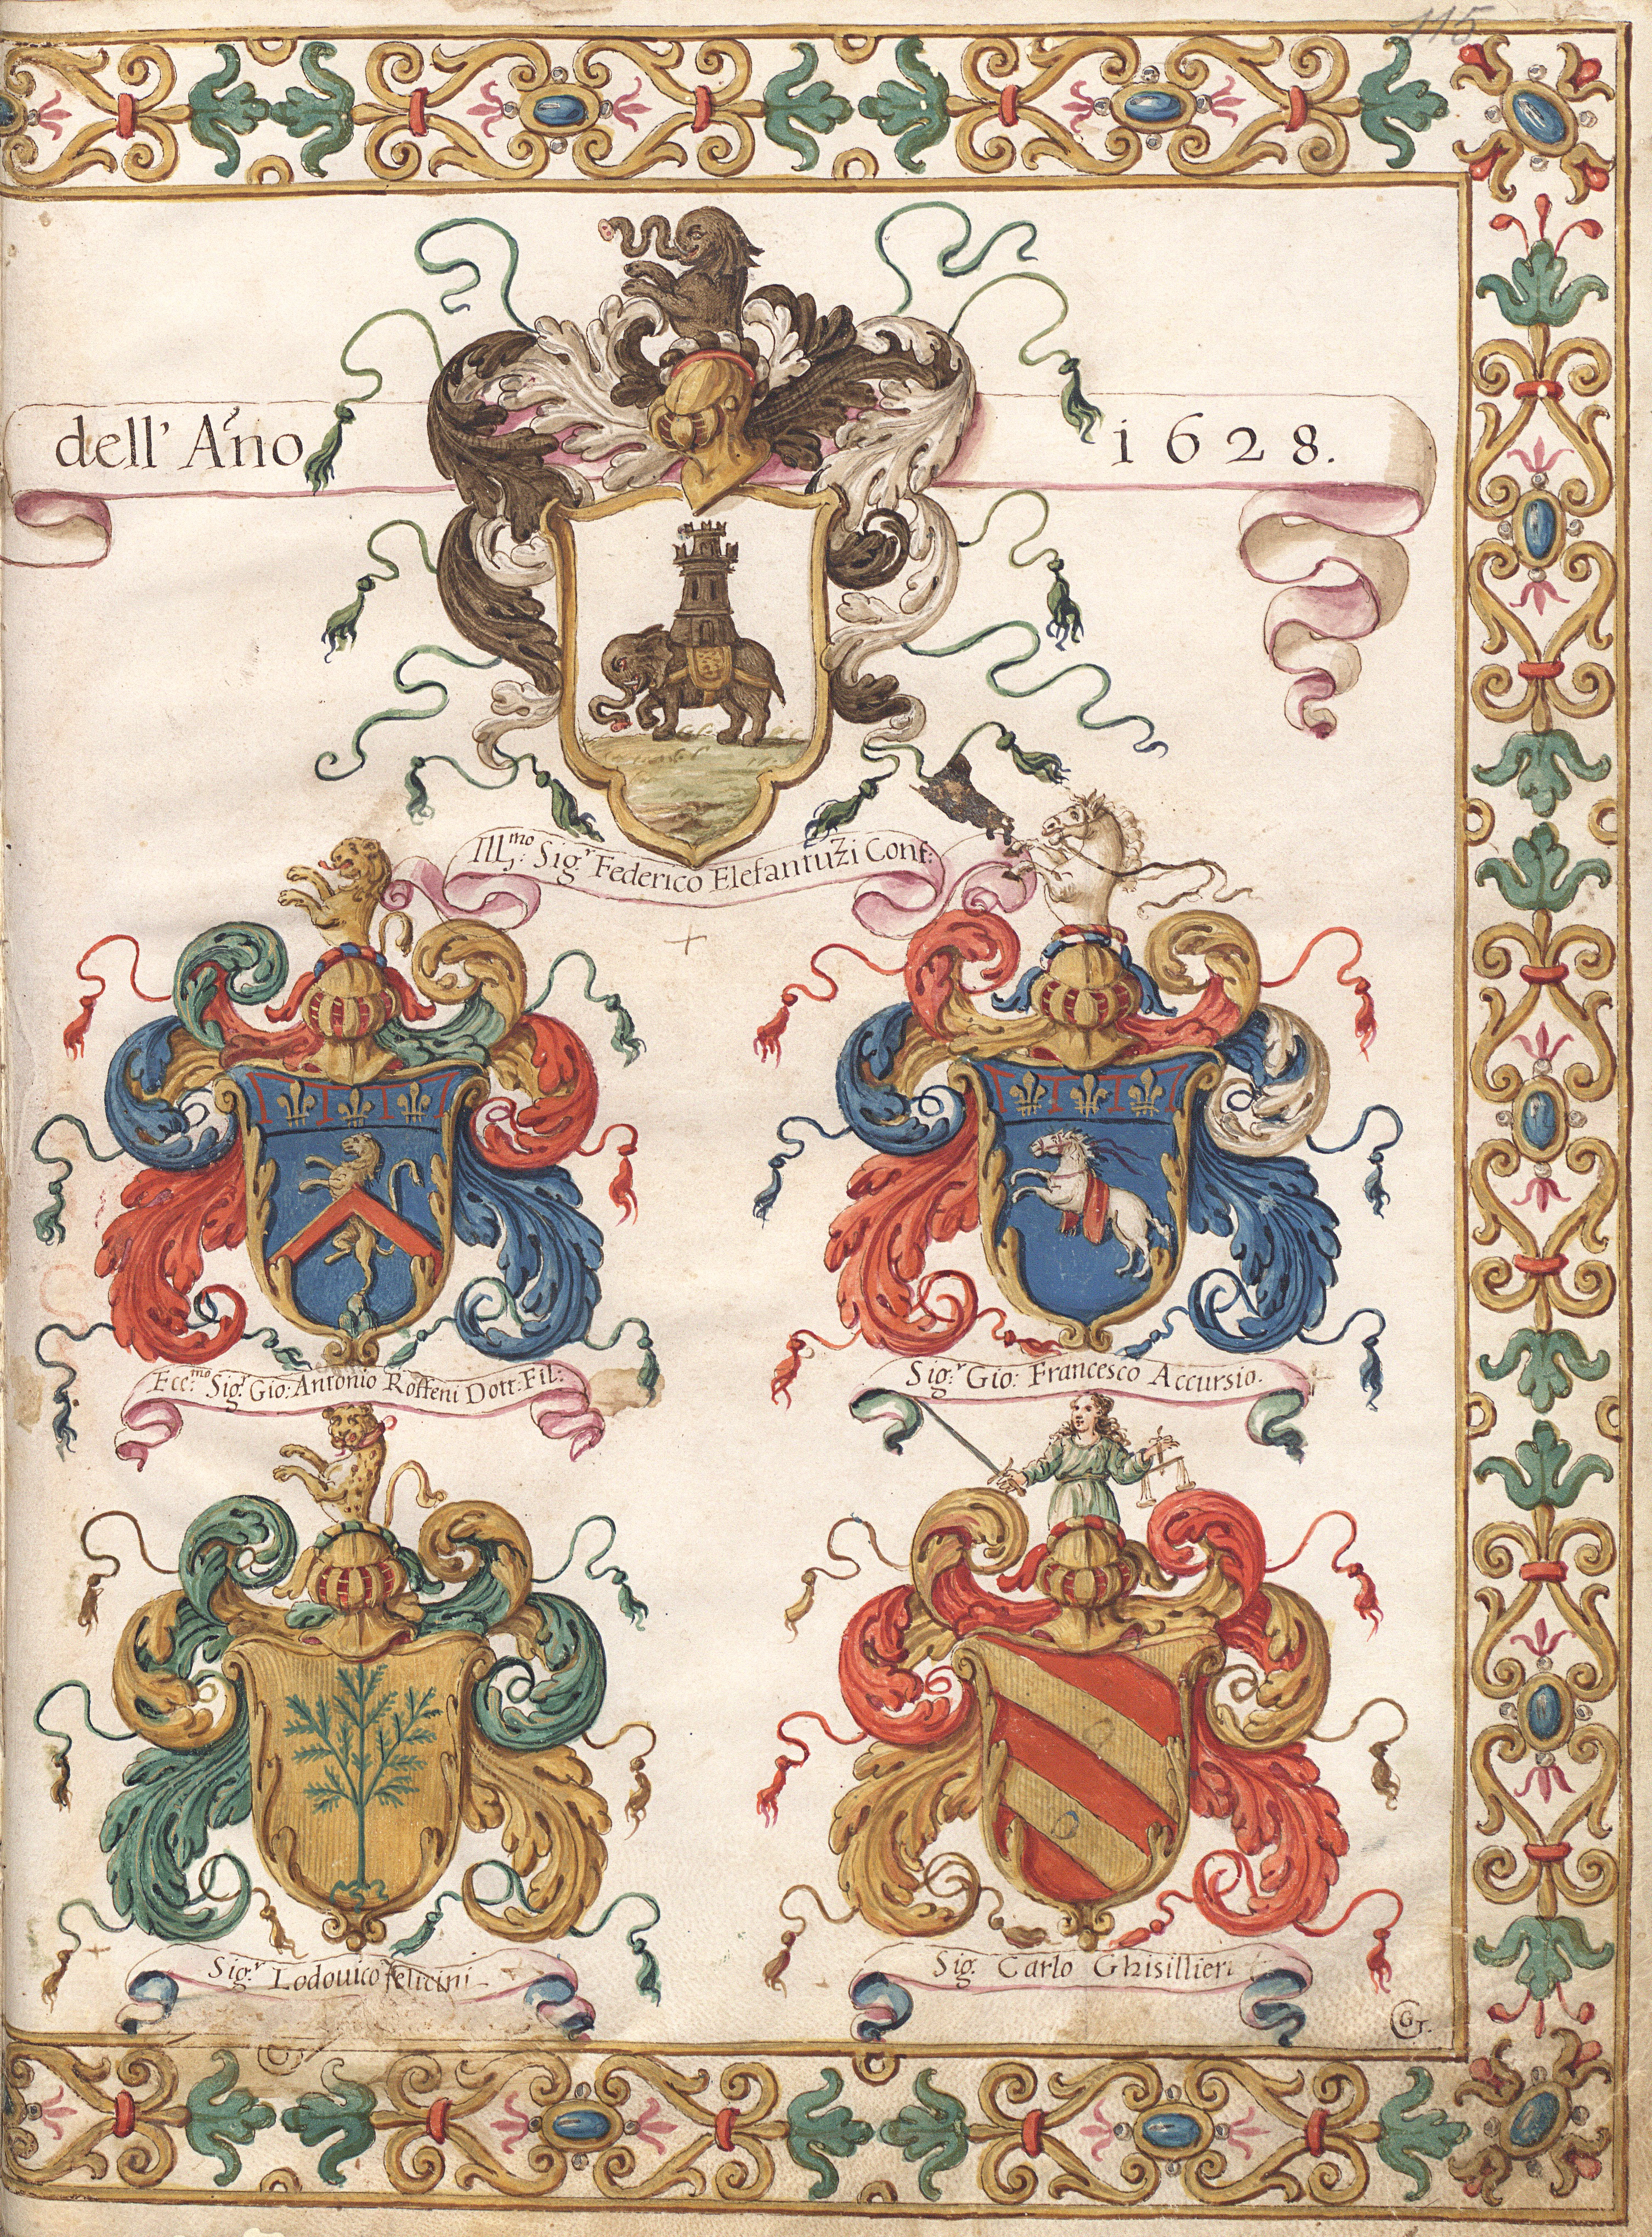 115
dell' Año 1628.
Ill.mo Sig.r Federico Elefantuzi Conf:
Ecc.mo Sig.r Gio: Antonio Roffeni Dott: Fil:
Sig.r Gio: Francesco Accursio.
Sig.r Lodouico felicini
Sig. Carlo Ghisillieri